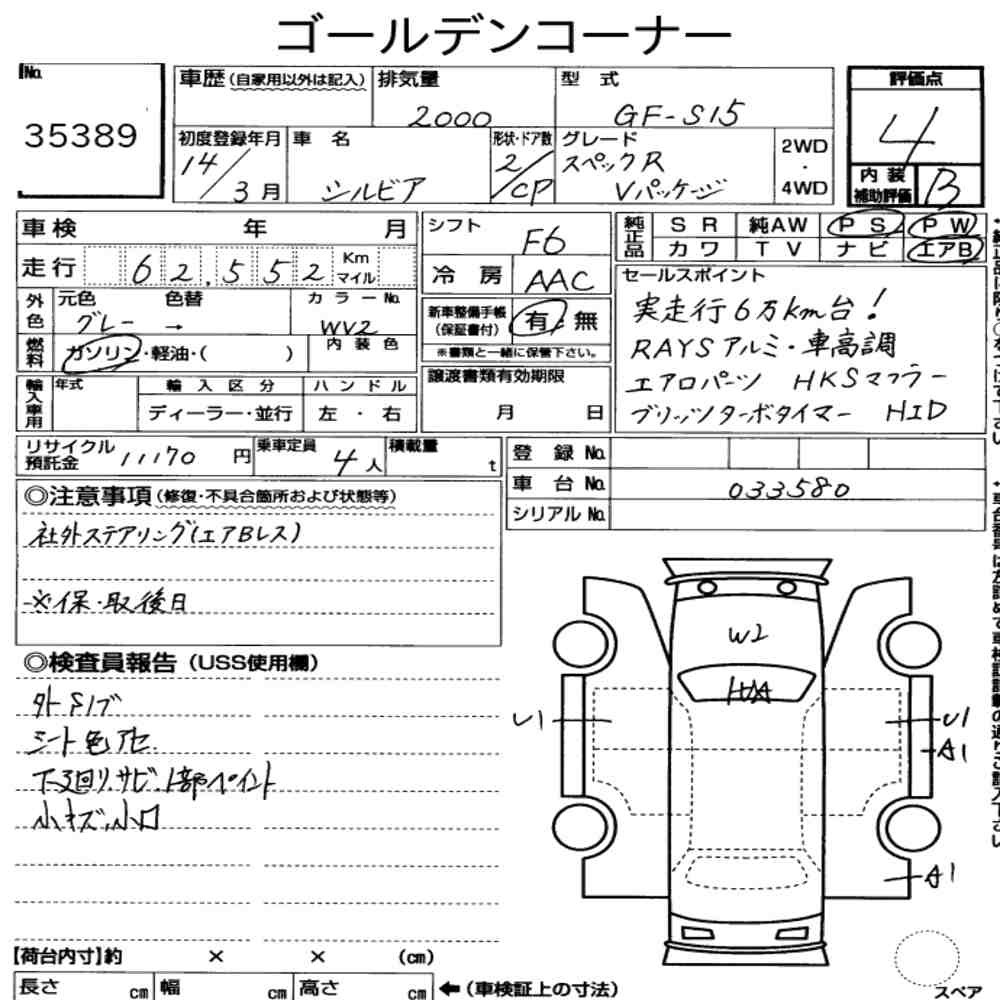 ゴールデンコーナー
No.
35389
車歴(自家用以外は記入) 排気量 2000
型式 GF-S15
評価点 4
内装補助評価 B
初度登録年月 14/3月
車名 シルビア
形状・ドア数 2/CP
グレード スペックR Vパッケージ
2WD・4WD
車検 年 月
シフト F6
純正品 SR 純AW PS PW
カワ TV ナビ エアB
走行 62,552 Km マイル
冷房 AAC
外色 元色 グレー → 色替
カラーNo. WV2
燃料 ガソリン・軽油・( )
内装色
新車整備手帳(保証書付) 有・無
※書類と一緒に保管下さい。
セールスポイント
実走行6万km台!
RAYSアルミ・車高調
エアロパーツ HKSマフラー
ブリッツターボタイマー HID
輸入車用 年式 輸入区分 ディーラー・並行
ハンドル 左・右
譲渡書類有効期限 月 日
リサイクル預託金 11170円
乗車定員 4人
積載量 t
登録No.
車台No. 033580
シリアルNo.
◎注意事項(修復・不具合箇所および状態等)
社外ステアリング(エアBレス)
※保・取後日
◎検査員報告(USS使用欄)
シート色アセ
下廻りサビ、1部ペイント
小キズ、小凹
W2
U1
U1
A1
A1
スペア
【荷台内寸】約 × × (cm)
長さ cm 幅 cm 高さ cm ←(車検証上の寸法)